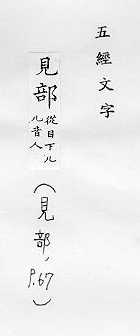 五經文字
見部 從目下儿
儿音人
(見部,P.67)